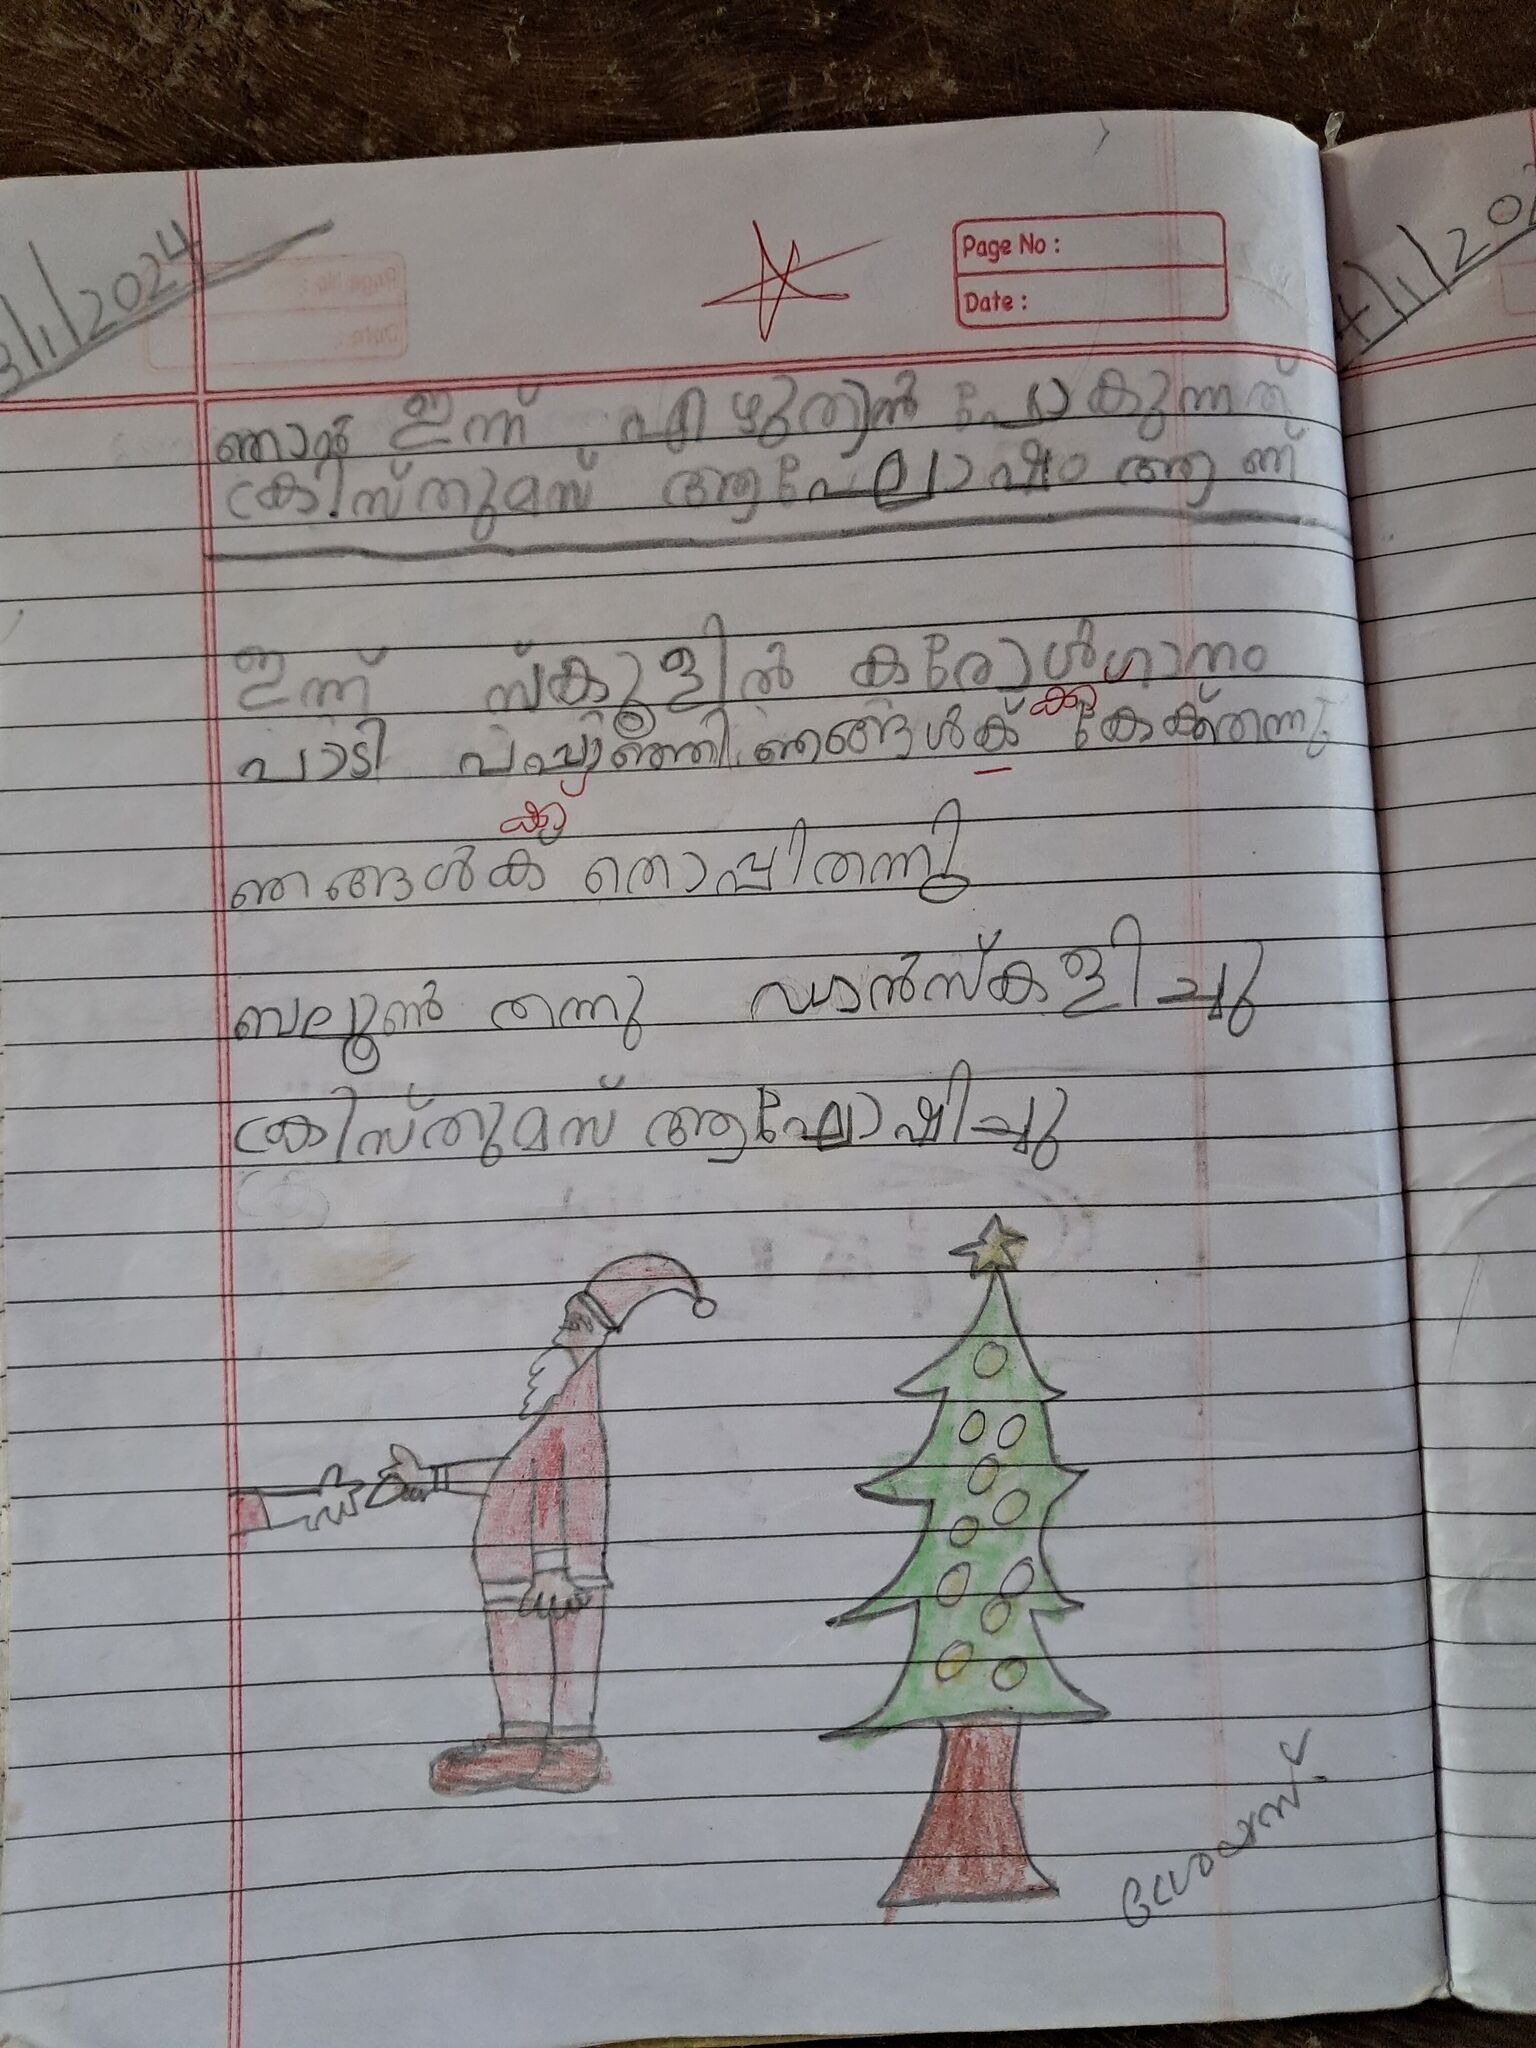 3/1/2024
Page No :
Date :
ഞാൻ ഇന്ന് എഴുതാൻ പോകുന്നത്
ക്രിസ്തുമസ് ആഘോഷം ആണ്
ഇന്ന് സ്കൂളിൽ കരോൾഗാനം
പാടി ഞങ്ങൾക് കേക്ക്തന്നു
ക്ക്
ഞങ്ങൾക് തൊപ്പിതന്നു
ബലൂൺ തന്നു ഡാൻസ്കളിച്ചു
ക്രിസ്തുമസ് ആഘോഷിച്ചു
4/1/202